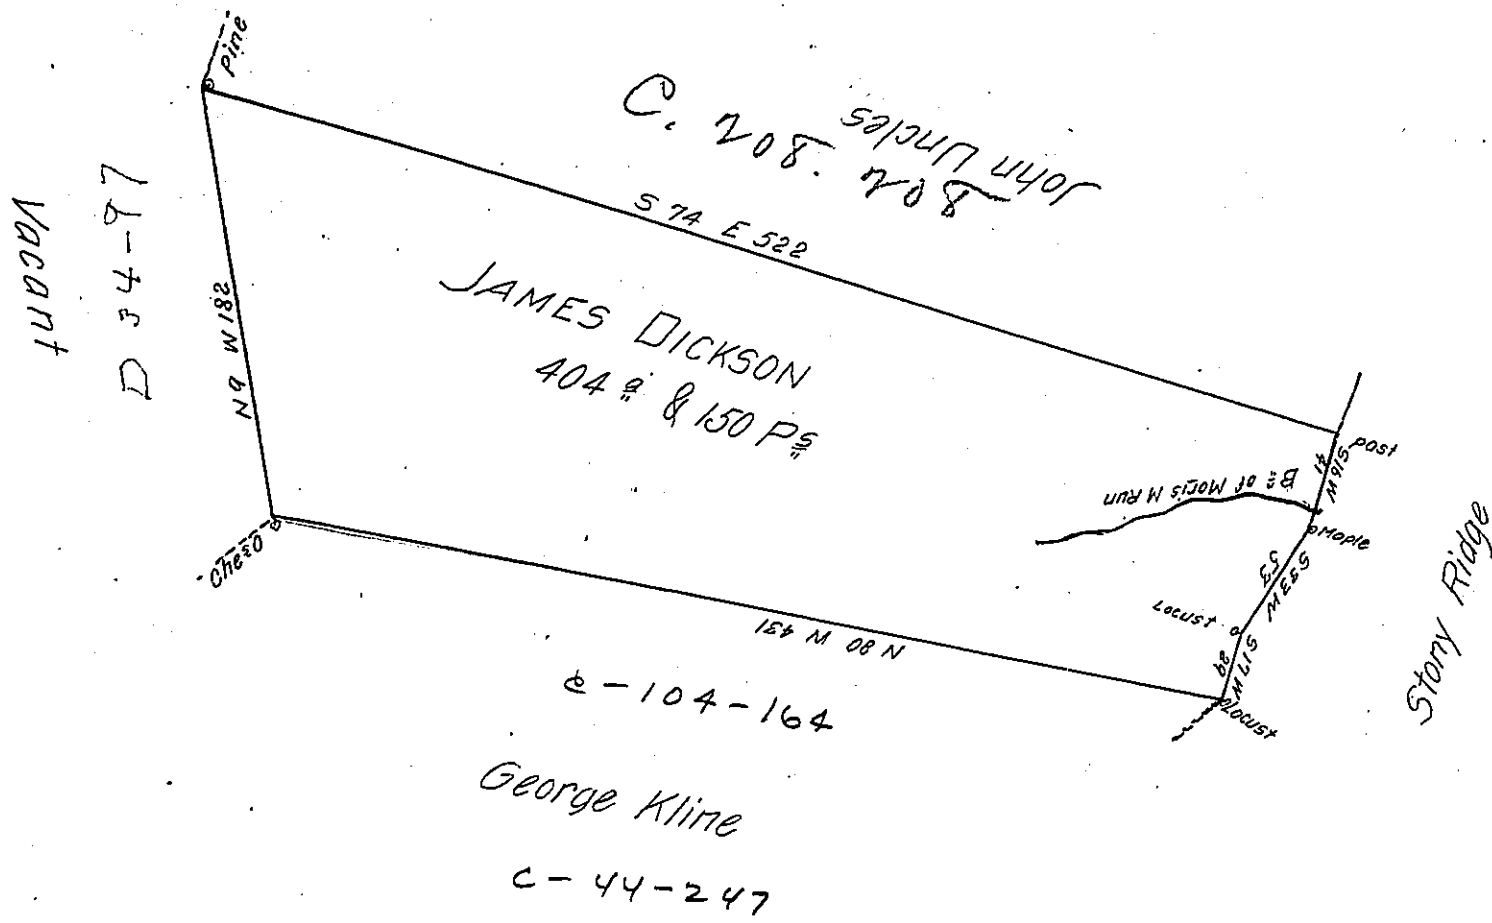 Pine
C. 208. 208
John Uncles
S 74 E 522
Vacant
D 34-97
N 9 W 182
JAMES DICKSON
404 a & 150 Ps
post
S 16 W
41
Br of Morris M Run
Maple
S 33 W
53
Locust
S 17 W
29
Locust
Stony Ridge
N 80 W 431
C-104-164
George Kline
C-44-247